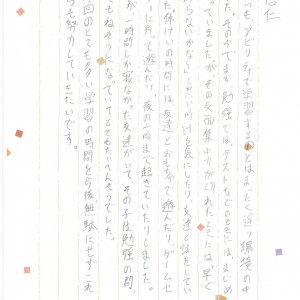 名仁
つも、アビリティで学習するのとはまったく違う環境の中
た。その中でまず、勉強では、テストなどのときには、まじめ
っていましたが、その反面集中力が切れたときには、早く
らないかな」と思い時計を気にしたり、友達と話をしてい
た。休けいの時間には、友達とおもちゃで遊んだり、ゲームセ
ーに行って遊んだり、夜の 時まで起きていたりしました。
が一時間しか寝なかった友達がいて、その子は勉強の間、
もねむそうになっていてとてもたいへんそうでした。
回のとても多い学習の時間を今後無駄にせずこれ
も努力していきたいです。